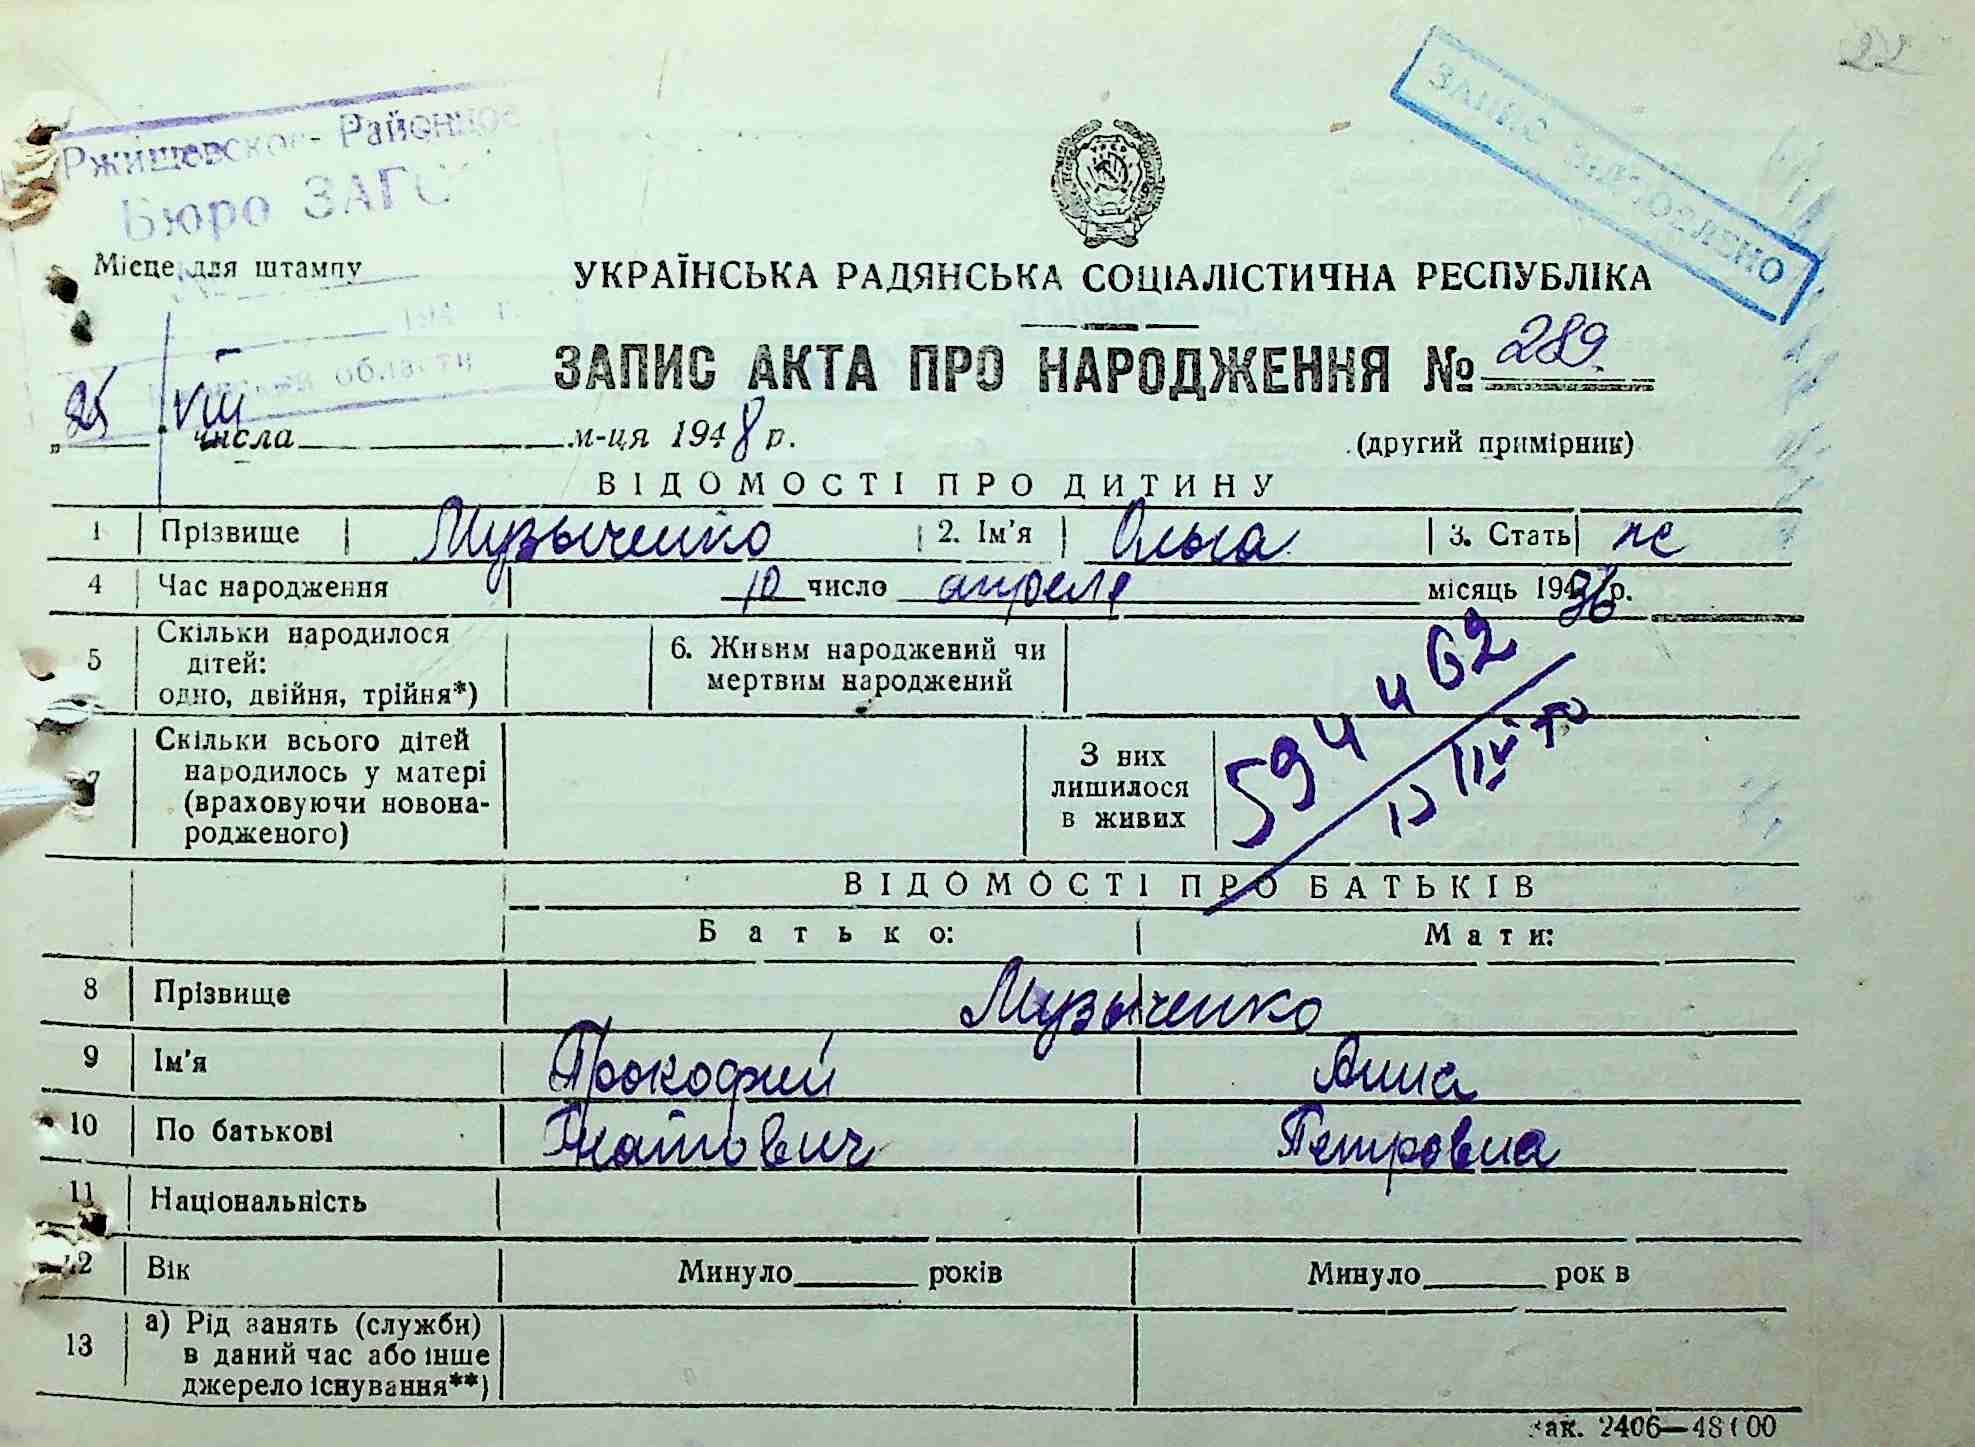 22
ЗАПИС ВІДНОВЛЕНО
Ржищевское Районное
Бюро ЗАГС
Місце для штампу
УКРАЇНСЬКА РАДЯНСЬКА СОЦІАЛІСТИЧНА РЕСПУБЛІКА
194 г.
области
ЗАПИС АКТА ПРО НАРОДЖЕННЯ № 289
„25 VIII числа м-ця 1948 р.
(другий примірник)
ВІДОМОСТІ ПРО ДИТИНУ
1 Прізвище Музыченко 2. Ім'я Ольга 3. Стать же
4 Час народження 10 число апреля місяць 1936 р.
5 Скільки народилося дітей: одно, двійня, трійня*) 6. Живим народжений чи мертвим народжений
594462
7 Скільки всього дітей народилось у матері (враховуючи новонародженого) З них лишилося в живих
ВІДОМОСТІ ПРО БАТЬКІВ
Батько: Мати:
8 Прізвище Музыченко
9 Ім'я Прокофий Анна
10 По батькові Игнатович Петровна
11 Національність
12 Вік Минуло років Минуло рок в
13 а) Рід занять (служби) в даний час або інше джерело існування**)
зак. 2406—48100